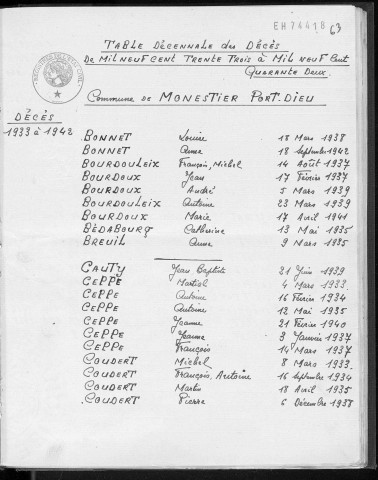 EH74418 63
TABLE DÉCENNALE des DÉCÈS
DE MIL NEUF CENT TRENTE TROIS à MIL NEUF CENT
QUARANTE DEUX.
COMMUNE DE MONESTIER PORT-DIEU
DÉCÈS
1933 à 1942
BONNET Louise 18 Mars 1938
BONNET Anna 18 Septembre 1942
BOURDOULEIX François, Michel 14 Août 1937
BOURDOUX Jean 17 Février 1937
BOURDOUX André 5 Mars 1939
BOURDOULEIX Antoine 23 Mars 1939
BOURDOUX Marie 17 Avril 1941
BÉDABOURG Catherine 13 Mai 1935
BREUIL Anna 9 Mars 1935
CAUTY Jean Baptiste 21 Juin 1939
CEPPE Martial 4 Mars 1933
CEPPE Antoine 16 Février 1934
CEPPE Antoine 12 Mai 1935
CEPPE Jeanne 21 Février 1940
CEPPE Jeanne 3 Janvier 1937
CEPPE François 14 Mars 1937
COUDERT Michel 8 Mars 1933
COUDERT François, Antoine 16 Septembre 1934
COUDERT Martin 18 Avril 1935
COUDERT Pierre 6 Décembre 1938